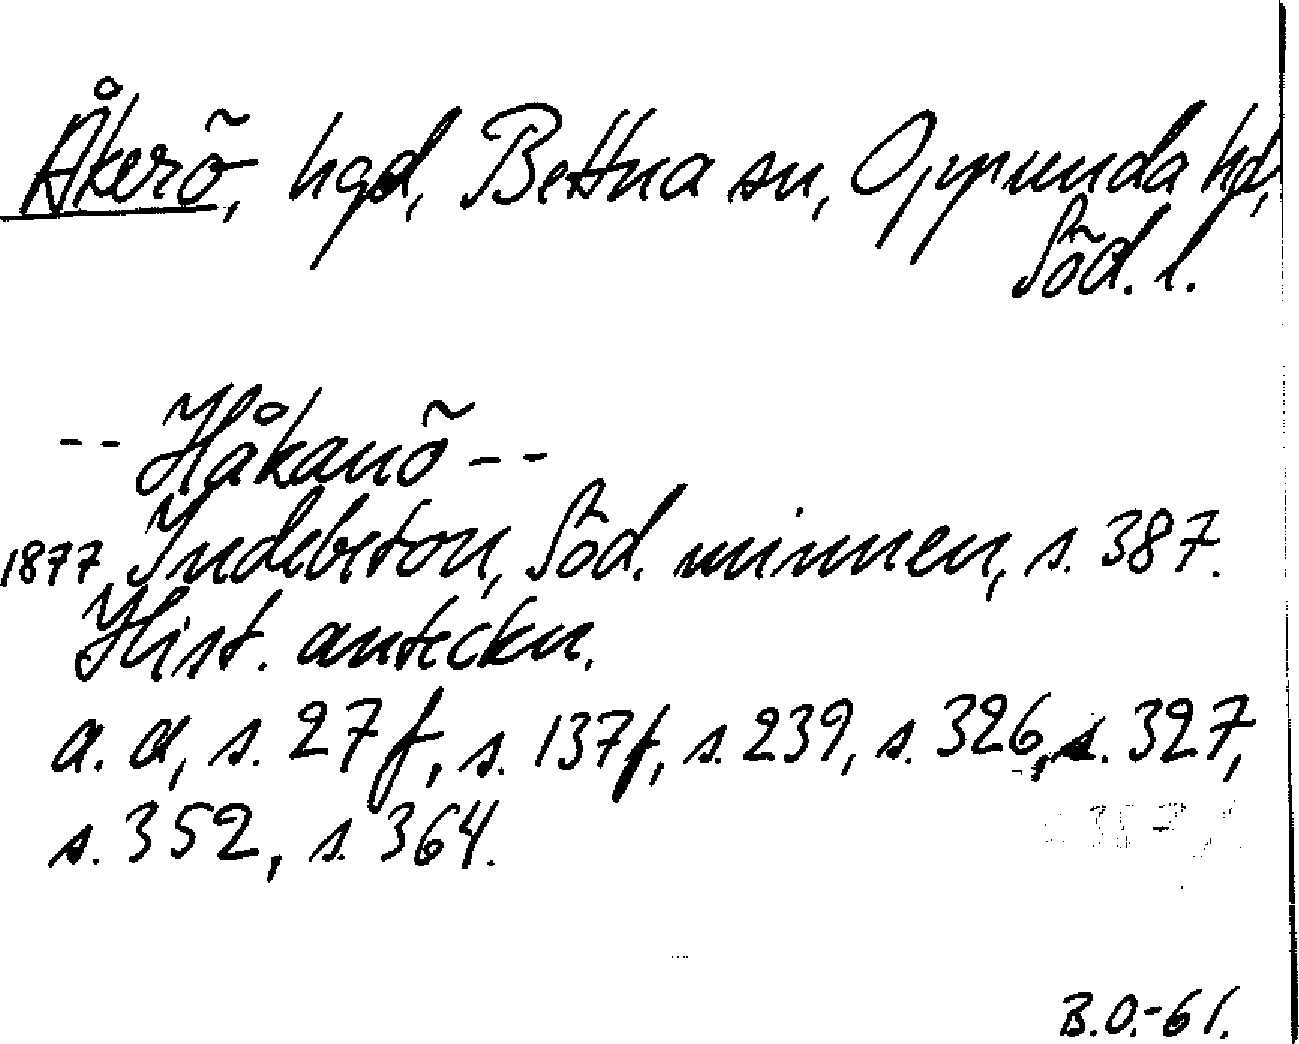 Åkerö, hgd, Bettna sn, Oppunda hd,
Söd. l.
-- Håkanö --
1877, Indebetou, Söd. minnen, s. 387.
Hist. anteckn.
a. a, s. 27 f, s. 137 f, s. 239, s. 326, s. 327,
s. 352, s. 364.
B.O.-61.